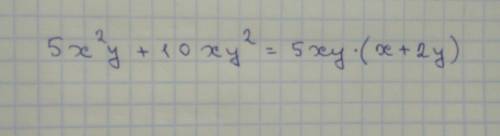 5x²y + 10xy² = 5xy·(x+2y)